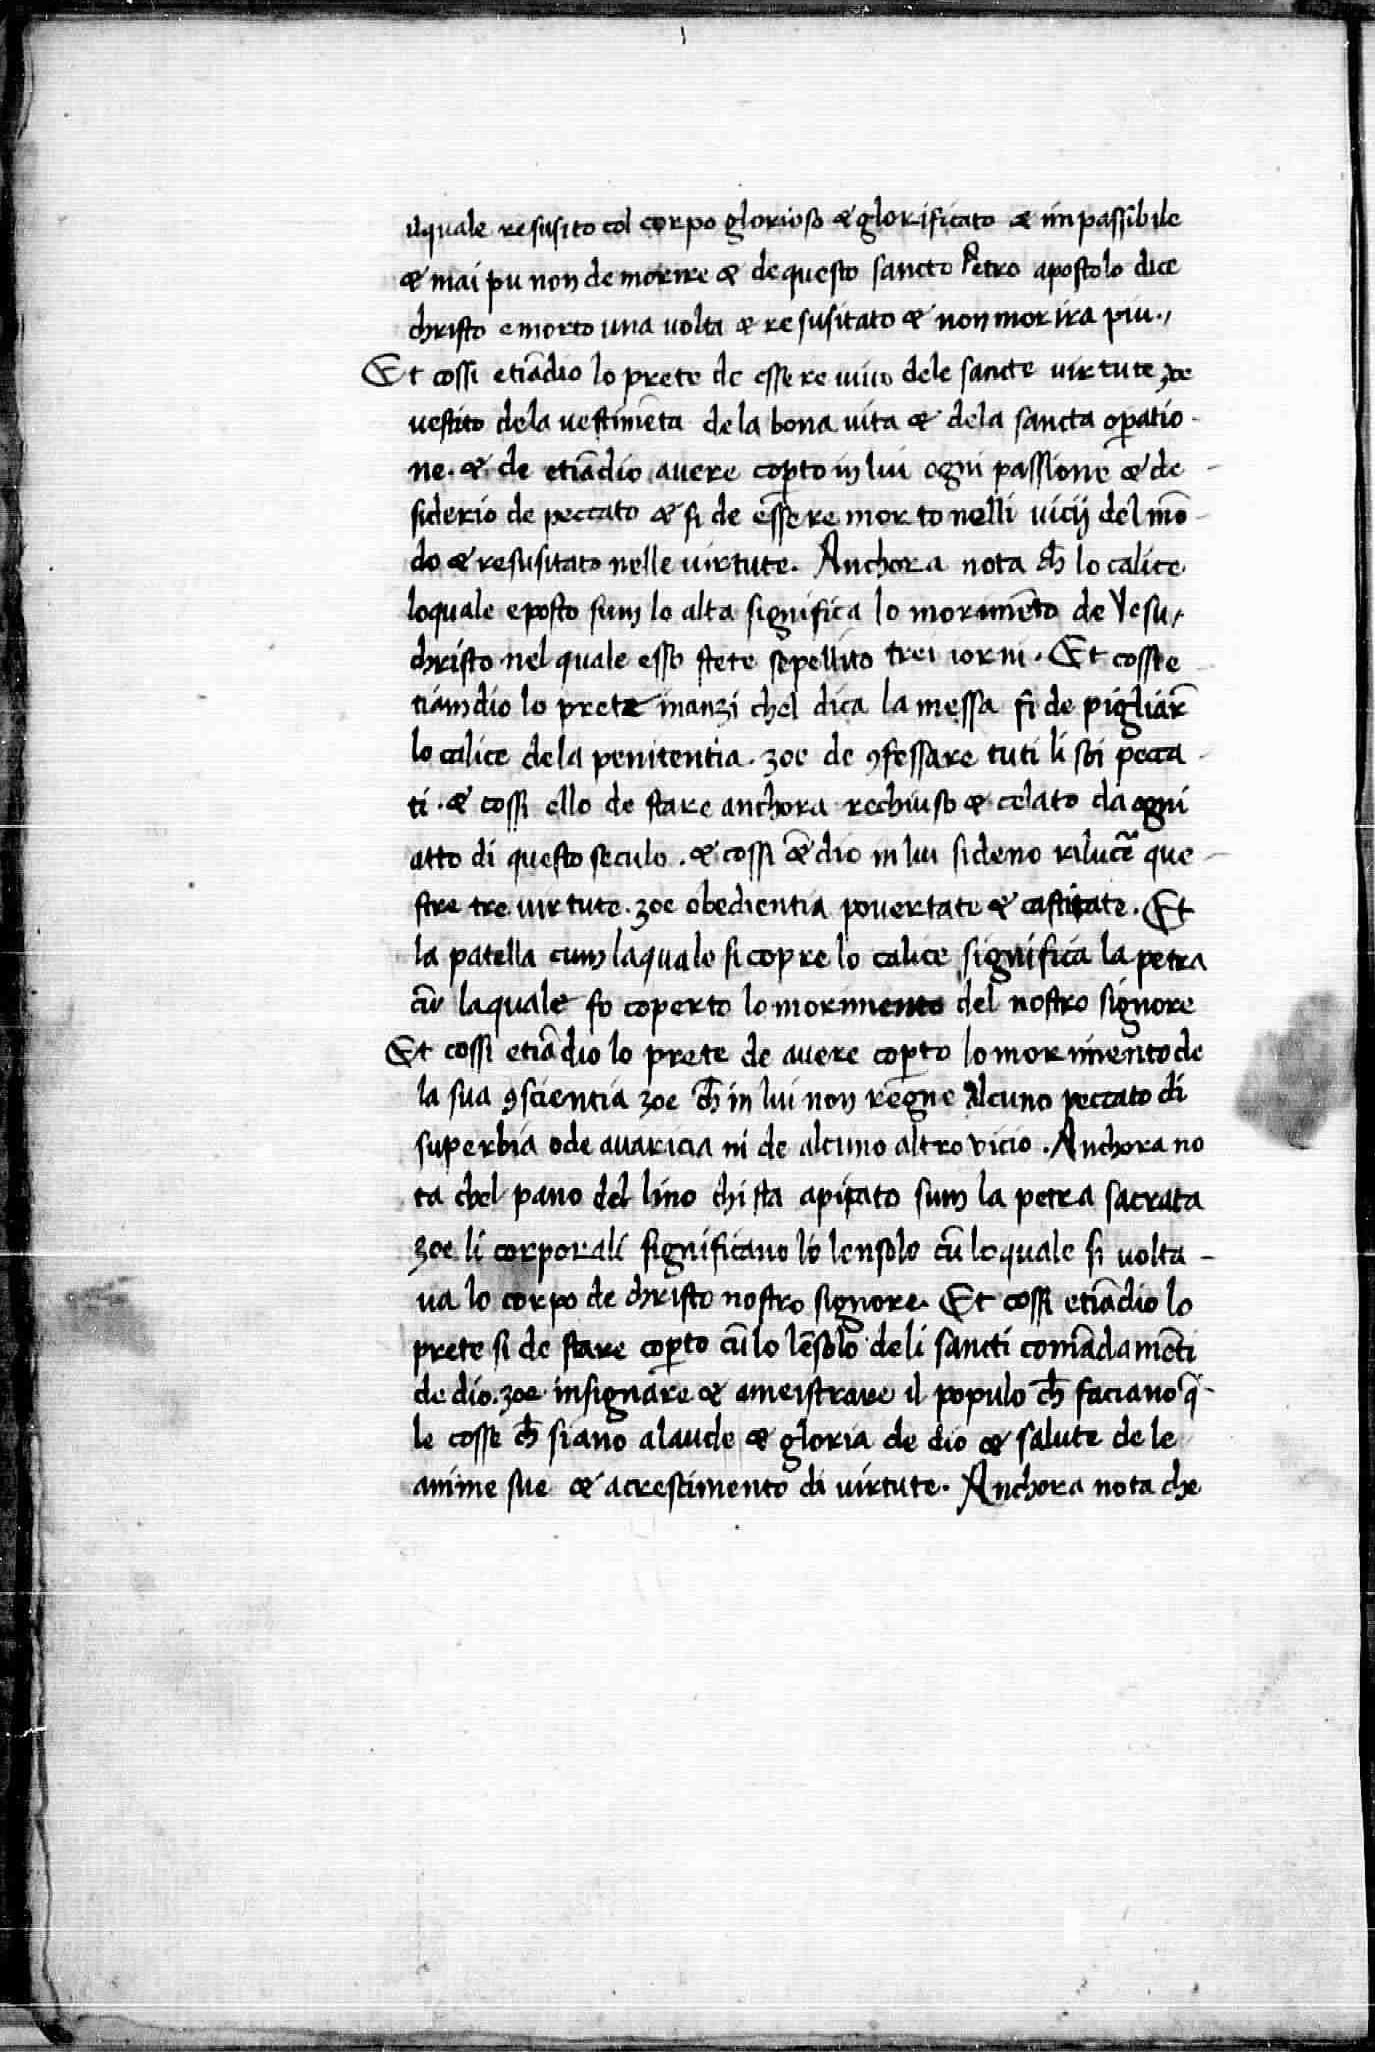 ilquale resusito col corpo glorioso & glorificato & inpassibile
& mai pu non de morire & de questo sancto Petro apostolo dice
christo e morto una volta & resusitato & non morira piu.,
Et cossi etiādio lo prete de essere vivo dele sancte virtute zoe
vestito dela vestimēta dela bona vita & dela sancta opatio-
ne. & de etiādio avere copto in lui ogni passione & de-
siderio de peccato & si de essere morto nelli vicij del mō-
do & resusitato nelle virtute. Anchora nota ch̄ lo calice
loquale e posto sum lo alta significa lo morimēto de Yesu,
christo nel quale esso stete sepellito trei iorni. Et cossi e-
tiamdio lo prete inanzi chel dica la messa si de pigliar̄
lo calice dela penitentia. zoe de ꝯfessare tuti li soi pecca-
ti. & cossi ello de stare anchora rechiuso & celato da ogni
atto di questo seculo. & cossi &̄dio in lui sideno rilucer̄ que-
stre tre virtute. zoe obedientia povertate & castitate. Et
la patella cum laquale si copre lo calice significa la petra
cū laquale fo coperto lo morimento del nostro signore
Et cossi etiādio lo prete de avere copto lo morimento de
la sua ꝯscientia zoe ch̄ in lui non regne alcuno peccato di
superbia o de avaricia ni de alcuno altro vicio. Anchora no
ta chel pano del lino chi sta apicato sum la petra sacrata
zoe li corporali significano lo lensolo cū loquale si volta-
va lo corpo de christo nostro signore. Et cossi etiādio lo
prete si de stare copto cū lo lēsolo deli sancti comādamēti
de dio. zoe insignare & ameistrare il populo ch̄ faciano q̄-
le cosse ch̄ siano a laude & gloria de dio & salute dele
anime sue & acrescimento di virtute. Anchora nota che